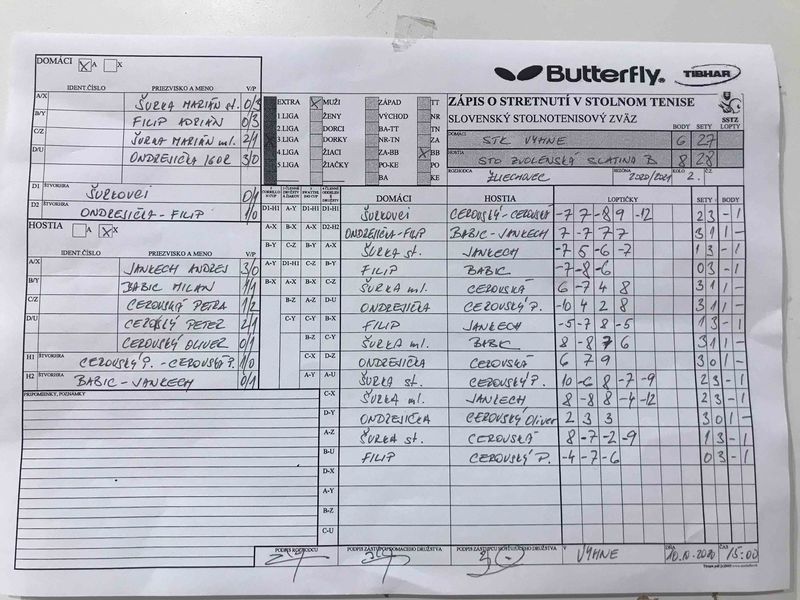 DOMÁCI X A X
IDENT.ČÍSLO PRIEZVISKO A MENO V/P
A/X ŠURKA MARIÁN st. 0/3
B/Y FILIP ADRIÁN 0/3
C/Z ŠURKA MARIÁN ml. 2/1
D/U ONDREJIČKA IGOR 3/0
D1 ŠTVORHRA ŠURKOVCI 0/1
D2 ŠTVORHRA ONDREJIČKA - FILIP 1/0
HOSTIA A X X
IDENT.ČÍSLO PRIEZVISKO A MENO V/P
A/X JANKECH ANDREJ 3/0
B/Y BABIC MILAN 1/1
C/Z CEROVSKÁ PETRA 1/2
D/U CEROVSKÝ PETER 2/1
CEROVSKÝ OLIVER 0/1
H1 ŠTVORHRA CEROVSKÝ P. - CEROVSKÁ P. 1/0
H2 ŠTVORHRA BABIC - JANKECH 0/1
PRIPOMIENKY, POZNÁMKY
Butterfly. TIBHAR
EXTRA X MUŽI ZÁPAD TT
1 LIGA ŽENY VÝCHOD NR
2 LIGA DORCI BA-TT TN
3 LIGA DORKY NR-TN ZA
4 LIGA ŽIACI ZA-BB X BB
5 LIGA ŽIAČKY PO-KE PO
BA KE
ZÁPIS O STRETNUTÍ V STOLNOM TENISE
SLOVENSKÝ STOLNOTENISOVÝ ZVÄZ SSTZ
BODY SETY LOPTY
DOMÁCI STK VYHNE 6 27
HOSTIA STO ZVOLENSKÁ SLATINA B 8 28
ROZHODCA ŽLIECHOVEC SEZÓNA 2020/2021 KOLO 2. Č.Z.
DOMÁCI HOSTIA LOPTIČKY SETY BODY
D1-H1 A-Y D1-H1 D1-H1 ŠURKOVCI CEROVSKÝ-CEROVSKÁ -7 7 -8 9 -12 2 3 - 1
A-X B-X A-X D2-H2 ONDREJIČKA-FILIP BABIC - JANKECH 7 -7 7 7 3 1 1 -
B-Y C-Z B-Y A-X ŠURKA st. JANKECH -7 5 -6 -7 1 3 - 1
A-Y D1-H1 C-Z B-Y FILIP BABIC -7 -8 -6 0 3 - 1
B-X A-X B-X C-Z ŠURKA ml. CEROVSKÁ 6 -7 4 8 3 1 1 -
B-Z A-Z D-U ONDREJIČKA CEROVSKÝ P. -10 4 2 8 3 1 1 -
C-Y C-Y B-X FILIP JANKECH -5 -7 8 -5 1 3 - 1
B-Z C-Y ŠURKA ml. BABIC 8 -8 7 6 3 1 1 -
C-X D-Z ONDREJIČKA CEROVSKÁ 6 7 9 3 0 1 -
A-Y A-U ŠURKA st. CEROVSKÝ P. 10 -6 8 -7 -9 2 3 - 1
C-X ŠURKA ml. JANKECH 8 -8 8 -4 -12 2 3 - 1
D-Y ONDREJIČKA CEROVSKÝ Oliver 2 3 3 3 0 1 -
A-Z ŠURKA st. CEROVSKÁ 8 -7 -2 -9 1 3 - 1
B-U FILIP CEROVSKÝ P. -4 -7 -6 0 3 - 1
D-X
A-Y
B-Z
C-U
PODPIS ROZHODCU PODPIS ZÁSTUPCU DOMÁCEHO DRUŽSTVA PODPIS ZÁSTUPCU HOSŤUJÚCEHO DRUŽSTVA V VYHNE DŇA 10.10.2020 ČAS 15:00